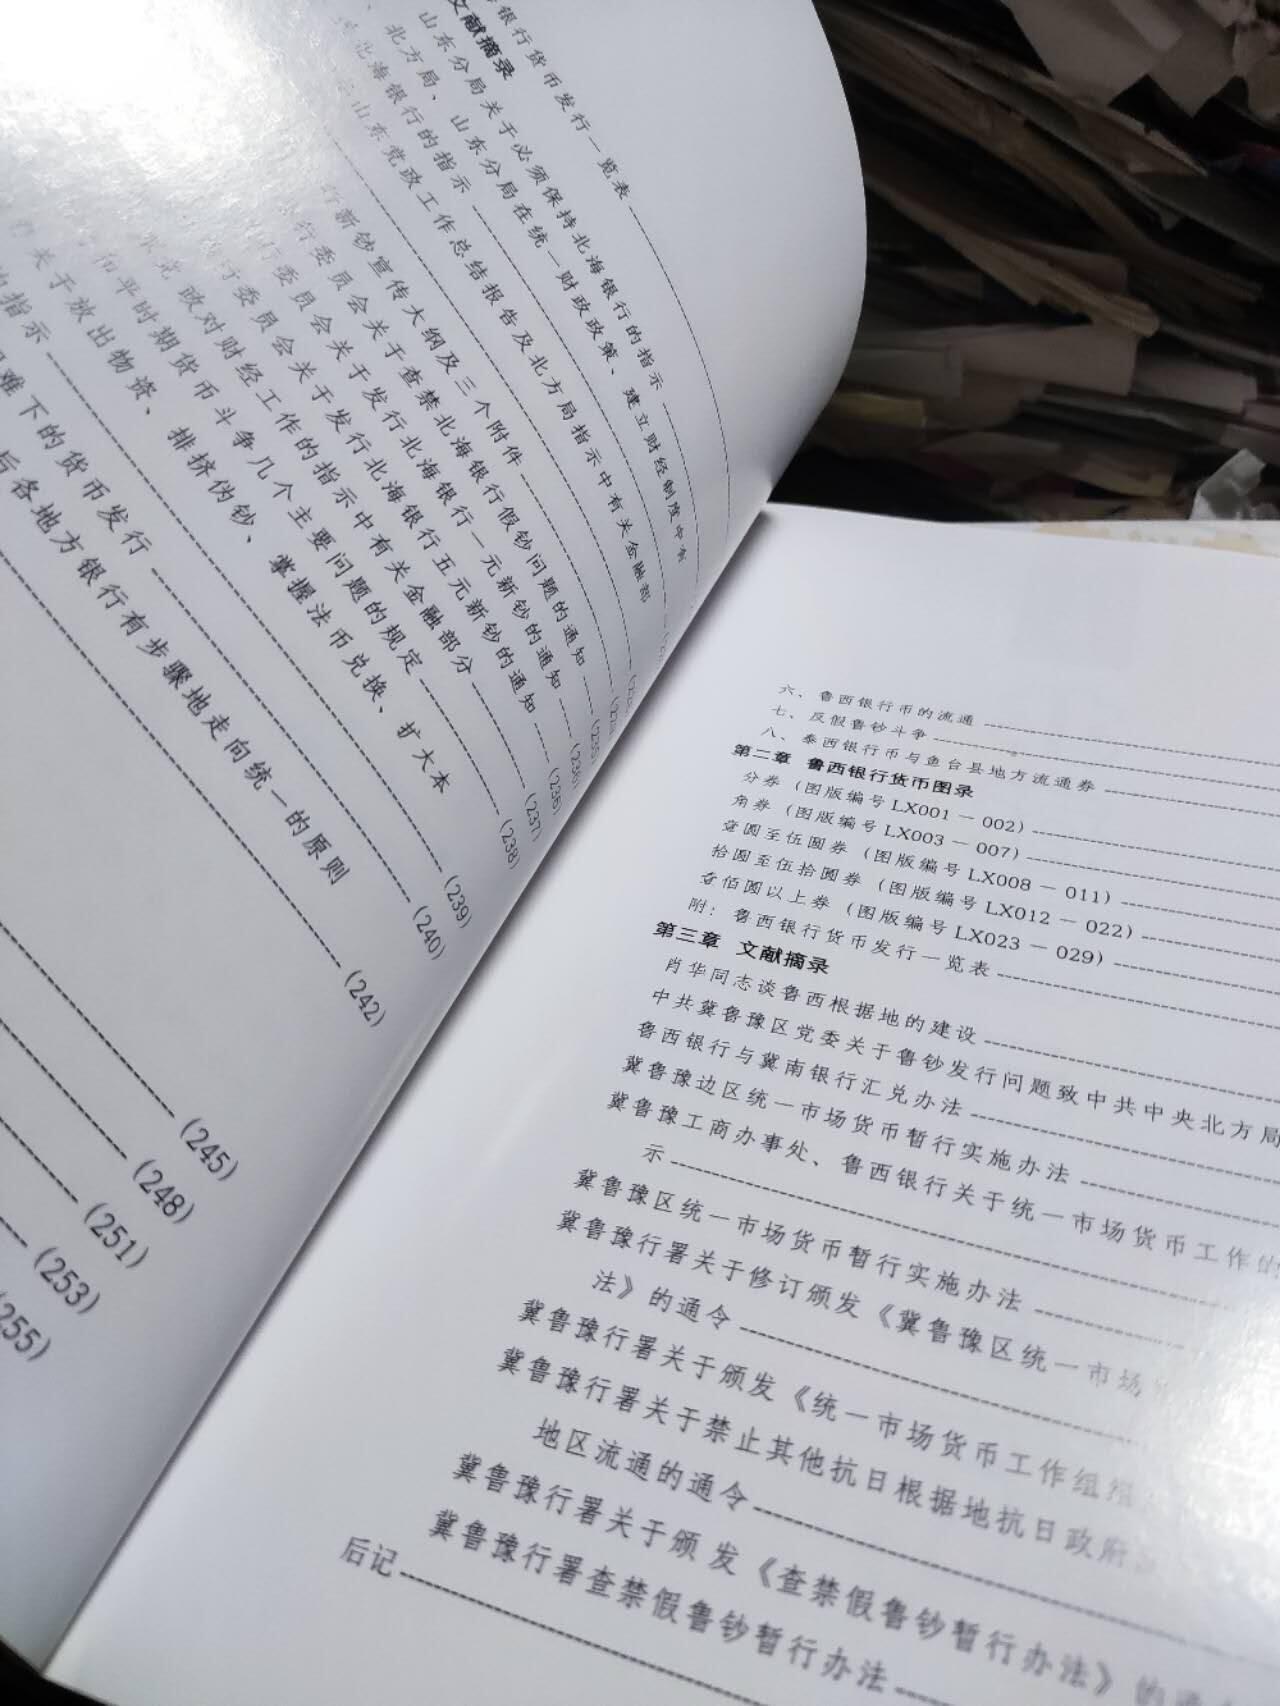 银行货币发行一览表
文献摘录
山东分局关于必须保持北海银行的指示
北方局、山东分局在统一财政政策、建立财经制度中有
北海银行的指示
山东党政工作总结报告及北方局指示中有关金融部
新钞宣传大纲及三个附件
行委员会关于查禁北海银行假钞问题的通知
行委员会关于发行北海银行一元新钞的通知
行委员会关于发行北海银行五元新钞的通知 (236)
政对财经工作的指示中有关金融部分 (237)
和平时期货币斗争几个主要问题的规定 (238)
关于放出物资、排挤伪钞、掌握法币兑换、扩大本
指示 (239)
难下的货币发行 (240)
后各地方银行有步骤地走向统一的原则
(242)
(245)
(248)
(251)
(253)
255)
六、鲁西银行币的流通
七、反假鲁钞斗争
八、泰西银行币与鱼台县地方流通券
第二章 鲁西银行货币图录
分券（图版编号LX001－002）
角券（图版编号LX003－007）
壹圆至伍圆券（图版编号LX008－011）
拾圆至伍拾圆券（图版编号LX012－022）
壹佰圆以上券（图版编号LX023－029）
附：鲁西银行货币发行一览表
第三章 文献摘录
肖华同志谈鲁西根据地的建设
中共冀鲁豫区党委关于鲁钞发行问题致中共中央北方局
鲁西银行与冀南银行汇兑办法
冀鲁豫边区统一市场货币暂行实施办法
冀鲁豫工商办事处、鲁西银行关于统一市场货币工作的
示
冀鲁豫区统一市场货币暂行实施办法
冀鲁豫行署关于修订颁发《冀鲁豫区统一市场
法》的通令
冀鲁豫行署关于颁发《统一市场货币工作组组
冀鲁豫行署关于禁止其他抗日根据地抗日政府
地区流通的通令
冀鲁豫行署关于颁发《查禁假鲁钞暂行办法》的
冀鲁豫行署查禁假鲁钞暂行办法
后记